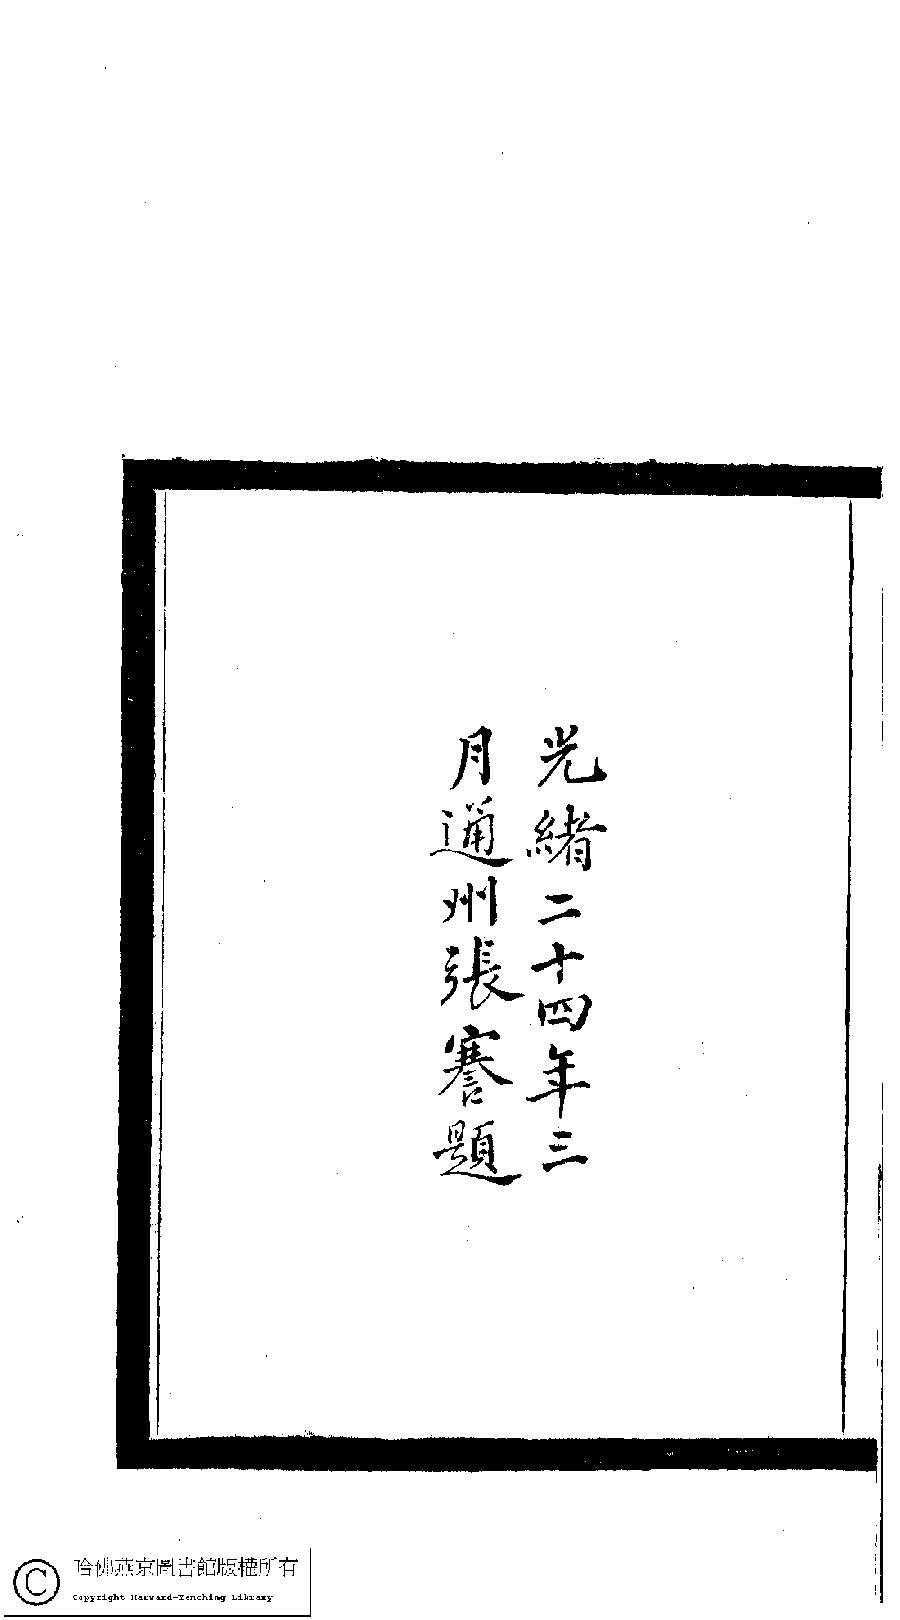 光緒二十四年三
月通州張謇題
哈佛燕京圖書館版權所有
Copyright Harvard-Yenching Library